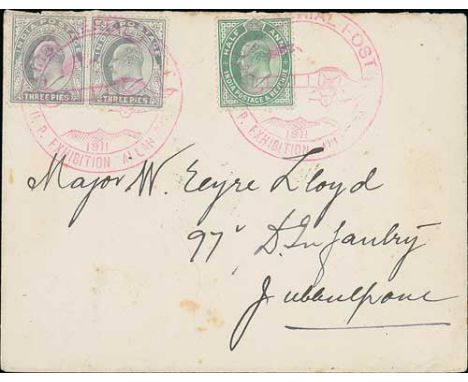 INDIA POSTAGE
THREE PIES
INDIA POSTAGE
THREE PIES
HALF ANNA
INDIA POSTAGE & REVENUE
1911
U.P. EXHIBITION ALLAHABAD
AERIAL POST
1911
U.P. EXHIBITION
Major W. Eyre Lloyd
97th D. Infantry
Jubbulpore